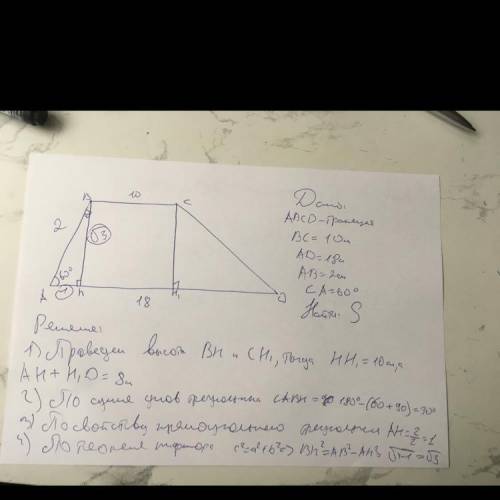 B 10 C
2 √3 60°
A H 18 H₁ D
Дано:
ABCD - трапеция
BC = 10м
AD = 18м
AB = 2м
∠A = 60°
Найти: S
Решение:
1) Проведем высоты BH и CH₁, тогда HH₁ = 10м, а
AH + H₁D = 8м
2) По сумме углов треугольника ∠ABH = 180° - (60 + 90) = 30°
3) По свойству прямоугольного треугольника AH = 2/2 = 1
4) По теореме Пифагора c² = a² + b² => BH² = AB² - AH² = √3